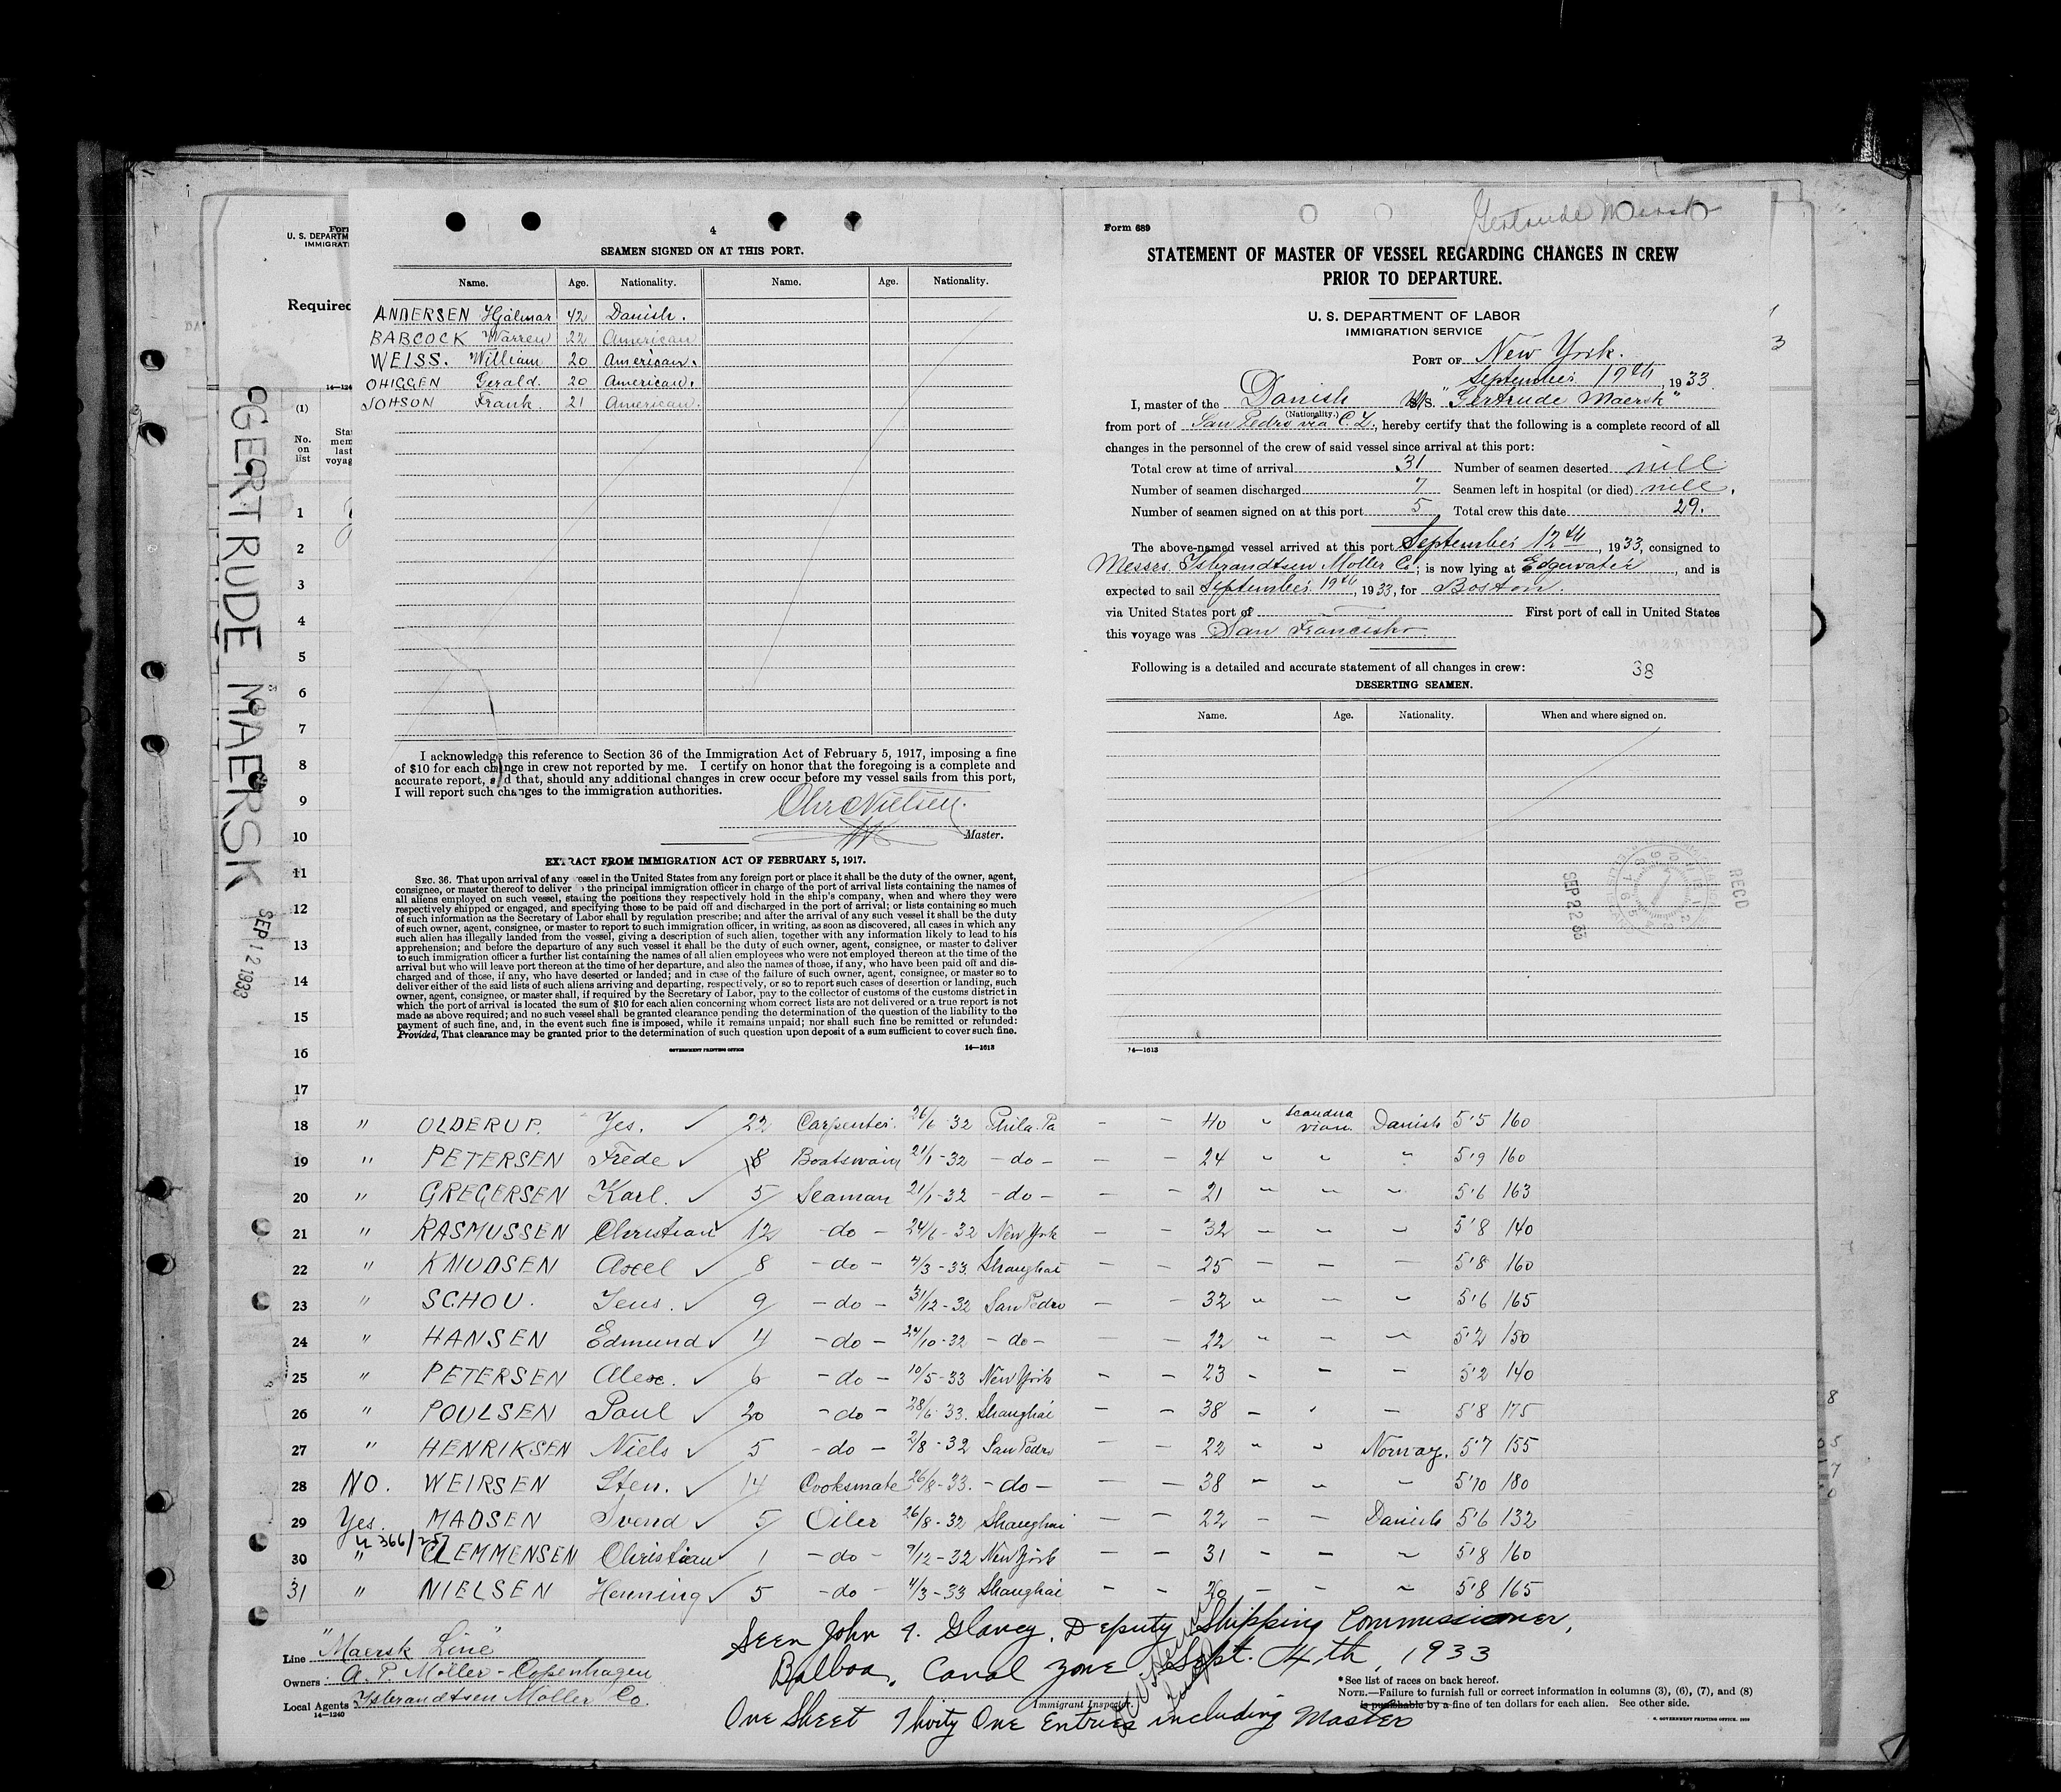 4
SEAMEN SIGNED ON AT THIS PORT.
Name. Age. Nationality. Name. Age. Nationality.
ANDERSEN Hjalmar 42 Danish.
BABCOCK Warren 22 American
WEISS. William 20 American.
OHIGGEN Gerald. 20 American.
JOHSON Frank. 21 American.
I acknowledge this reference to Section 36 of the Immigration Act of February 5, 1917, imposing a fine
of $10 for each change in crew not reported by me. I certify on honor that the foregoing is a complete and
accurate report, and that, should any additional changes in crew occur before my vessel sails from this port,
I will report such changes to the immigration authorities.
Chr Nielsen.
Master.
EXTRACT FROM IMMIGRATION ACT OF FEBRUARY 5, 1917.
SEC. 36. That upon arrival of any vessel in the United States from any foreign port or place it shall be the duty of the owner, agent,
consignee, or master thereof to deliver to the principal immigration officer in charge of the port of arrival lists containing the names of
all aliens employed on such vessel, stating the positions they respectively hold in the ship's company, when and where they were
respectively shipped or engaged, and specifying those to be paid off and discharged in the port of arrival; or lists containing so much
of such information as the Secretary of Labor shall by regulation prescribe; and after the arrival of any such vessel it shall be the duty
of such owner, agent, consignee, or master to report to such immigration officer, in writing, as soon as discovered, all cases in which any
such alien has illegally landed from the vessel, giving a description of such alien, together with any information likely to lead to his
apprehension; and before the departure of any such vessel it shall be the duty of such owner, agent, consignee, or master to deliver
to such immigration officer a further list containing the names of all alien employees who were not employed thereon at the time of the
arrival but who will leave port thereon at the time of her departure, and also the names of those, if any, who have been paid off and dis-
charged and of those, if any, who have deserted or landed; and in case of the failure of such owner, agent, consignee, or master so to
deliver either of the said lists of such aliens arriving and departing, respectively, or so to report such cases of desertion or landing, such
owner, agent, consignee, or master shall, if required by the Secretary of Labor, pay to the collector of customs of the customs district in
which the port of arrival is located the sum of $10 for each alien concerning whom correct lists are not delivered or a true report is not
made as above required; and no such vessel shall be granted clearance pending the determination of the question of the liability to the
payment of such fine, and, in the event such fine is imposed, while it remains unpaid; nor shall such fine be remitted or refunded:
Provided, That clearance may be granted prior to the determination of such question upon deposit of a sum sufficient to cover such fine.
GOVERNMENT PRINTING OFFICE 14—1613
Gertrude Maersk
Form 689
STATEMENT OF MASTER OF VESSEL REGARDING CHANGES IN CREW
PRIOR TO DEPARTURE.
U. S. DEPARTMENT OF LABOR
IMMIGRATION SERVICE
PORT OF New York.
September 19th, 1933.
I, master of the Danish M/S. "Gertrude Maersk"
(Nationality.)
from port of San Pedro via C.Z., hereby certify that the following is a complete record of all
changes in the personnel of the crew of said vessel since arrival at this port:
Total crew at time of arrival 31 Number of seamen deserted nill
Number of seamen discharged 7 Seamen left in hospital (or died) nill.
Number of seamen signed on at this port 5 Total crew this date 29.
The above-named vessel arrived at this port September 12th, 1933, consigned to
Messrs. Isbrandtsen Moller Co.; is now lying at Edgewater, and is
expected to sail September 19th, 1933, for Boston.
via United States port of — First port of call in United States
this voyage was San Francisko
Following is a detailed and accurate statement of all changes in crew: 38
DESERTING SEAMEN.
Name. Age. Nationality. When and where signed on.
SEP 22 33
REC'D
14—1613
U. S. DEPARTM
IMMIGRATI
Required
14—124
(1)
No. on list
GERTRUDE MAERSK
SEP 12 1933
1
2
3
4
5
6
7
8
9
10
11
12
13
14
15
16
17
18 " OLDERUP. Yes. 22 Carpenter. 26/6-32 Phila. Pa — — 40 " Scandina vian. Danish 5'5 160
19 " PETERSEN Frede 18 Boatswain 21/1-32 -do- — — 24 " " " 5'9 160
20 " GREGERSEN Karl. 5 Seaman 21/1-32 -do- — — 21 " " " 5'6 163
21 " RASMUSSEN Christian 12 -do- 24/6-32 New York — — 32 " " " 5'8 140
22 " KNUDSEN Axel 8 -do- 4/3-33. Shanghai — — 25 — — — 5'8 160
23 " SCHOU. Jens. 9 -do- 31/12-32 San Pedro — — 32 " " " 5'6 165
24 " HANSEN Edmund 4 -do- 24/10-32 -do- — — 22 " " " 5'2 150
25 " PETERSEN Alex. 6 -do- 10/5-33 New York — — 23 - — — 5'2 140
26 " POULSEN Poul 20 -do- 28/6-33. Shanghai — — 38 — ' — 5'8 175
27 " HENRIKSEN Niels 5 -do- 2/8-32 San Pedro — — 22 " " Norway. 5'7 155
28 NO. WEIRSEN Sten. 14 Cooksmate 26/8-33. -do- — — 38 " " " 5'10 180
29 Yes. MADSEN Svend 5 Oiler 26/8-32 Shanghai — — 22 - — Danish 5'6 132
30 " CLEMMENSEN Christian 1 -do- 9/12-32 New York — — 31 - — " 5'8 160
31 " NIELSEN Henning 5 -do- 4/3-33 Shanghai — — 20 — — " 5'8 165
Line "Maersk Line"
Owners A. P. Möller - Copenhagen
Local Agents Isbrandtsen Moller Co.
14—1240
Seen John J. Glancy, Deputy Shipping Commissioner,
Balboa, Canal Zone Sept. 4th, 1933
Immigrant Inspector.
One Sheet Thirty One Entries including Master
*See list of races on back hereof.
NOTE.—Failure to furnish full or correct information in columns (3), (6), (7), and (8)
is punishable by a fine of ten dollars for each alien. See other side.